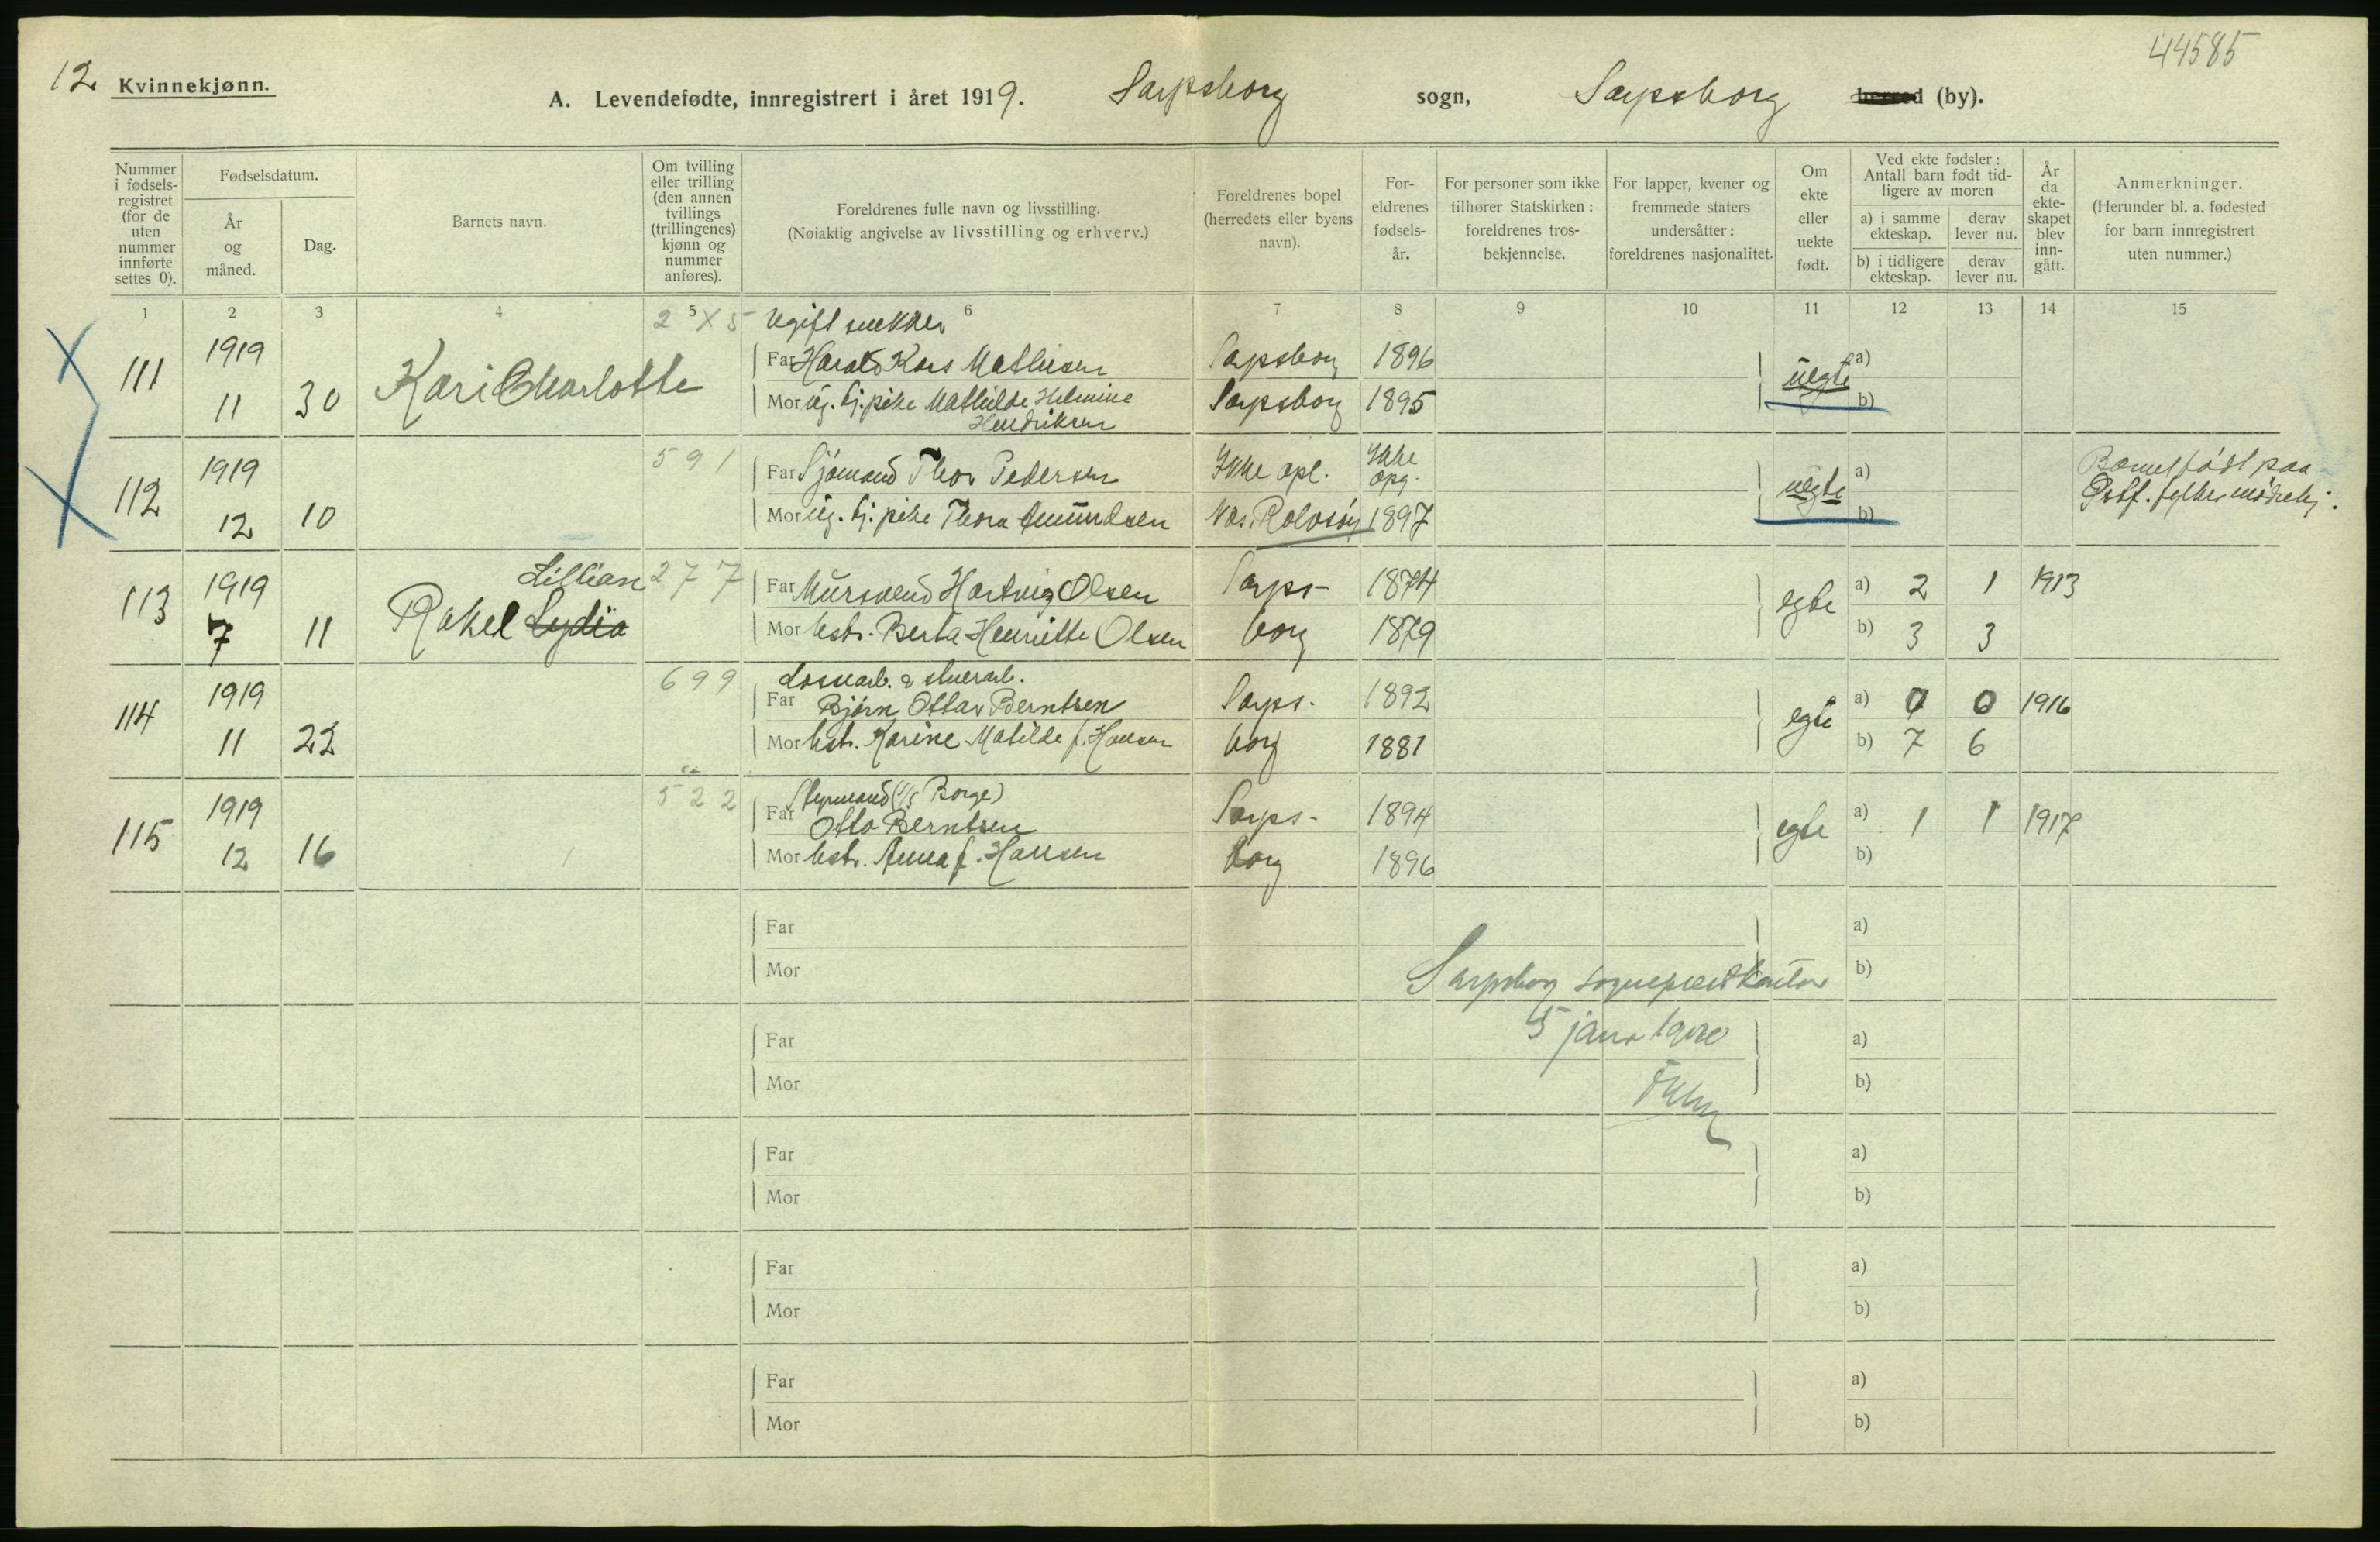 44585
12 Kvinnekjønn.
A. Levendefødte, innregistrert i året 1919. Sarpsborg sogn, Sarpsborg herred (by).
Nummer i fødsels-registret (for de uten nummer innførte settes 0).
Fødselsdatum.
År og måned.
Dag.
Barnets navn.
Om tvilling eller trilling (den annen tvillings (trillingenes) kjønn og nummer anføres).
Foreldrenes fulle navn og livsstilling.
(Nøiaktig angivelse av livsstilling og erhverv.)
Foreldrenes bopel (herredets eller byens navn).
For-eldrenes fødsels-år.
For personer som ikke tilhører Statskirken: foreldrenes tros-bekjennelse.
For lapper, kvener og fremmede staters undersåtter: foreldrenes nasjonalitet.
Om ekte eller uekte født.
Ved ekte fødsler: Antall barn født tid-ligere av moren
a) i samme ekteskap.
derav lever nu.
b) i tidligere ekteskap.
derav lever nu.
År da ekte-skapet blev inn-gått.
Anmerkninger.
(Herunder bl. a. fødested for barn innregistrert uten nummer.)
1 2 3 4 5 6 7 8 9 10 11 12 13 14 15
2 X 5 Ugift snekker
111 1919 Far Harald Kaas Mathisen Sarpsborg 1896 uegte a)
11 30 Kari Charlotte Mor ug. tj.pike Mathilde Helmine Sarpsborg 1895 b)
Hendriksen
112 1919 591 Far Sjömand Thor Pedersen Ikke opl. Ikke opg. uegte a) Barnet født paa
12 10 Mor ug. tj.pike Thora Amundsen Rolvsöy 1897 b) Østf. fylkes mödrehj.
Lillian 277
113 1919 Far Mursvend Hartvig Olsen Sarps- 1874 egte a) 2 1 1913
7 11 Rakel Lydia Mor hstr. Berta Henriette Olsen borg 1879 b) 3 3
699 Lossearb. & stuerarb.
114 1919 Far Björn Ottar Berntsen Sarps- 1892 egte a) 0 0 1916
11 22 Mor hstr. Karine Matilde f. Hansen borg 1881 b) 7 6
522 Styrmand (S/S Borge)
115 1919 Far Otto Berntsen Sarps- 1894 egte a) 1 1 1917
12 16 Mor hstr. Anna f. Hansen borg 1896 b)
Far a)
Mor b)
Sarpsborg sogneprestkontor
5 janr 1920
Far a)
Mor b)
Far a)
Mor b)
Far a)
Mor b)
Far a)
Mor b)